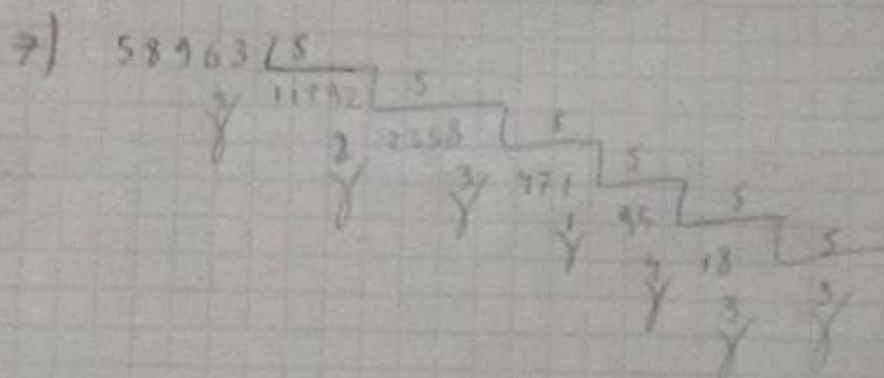 7) 58963 5
3 11792 5
2 2358 5
3 471 5
1 5
4 18 5
3 3